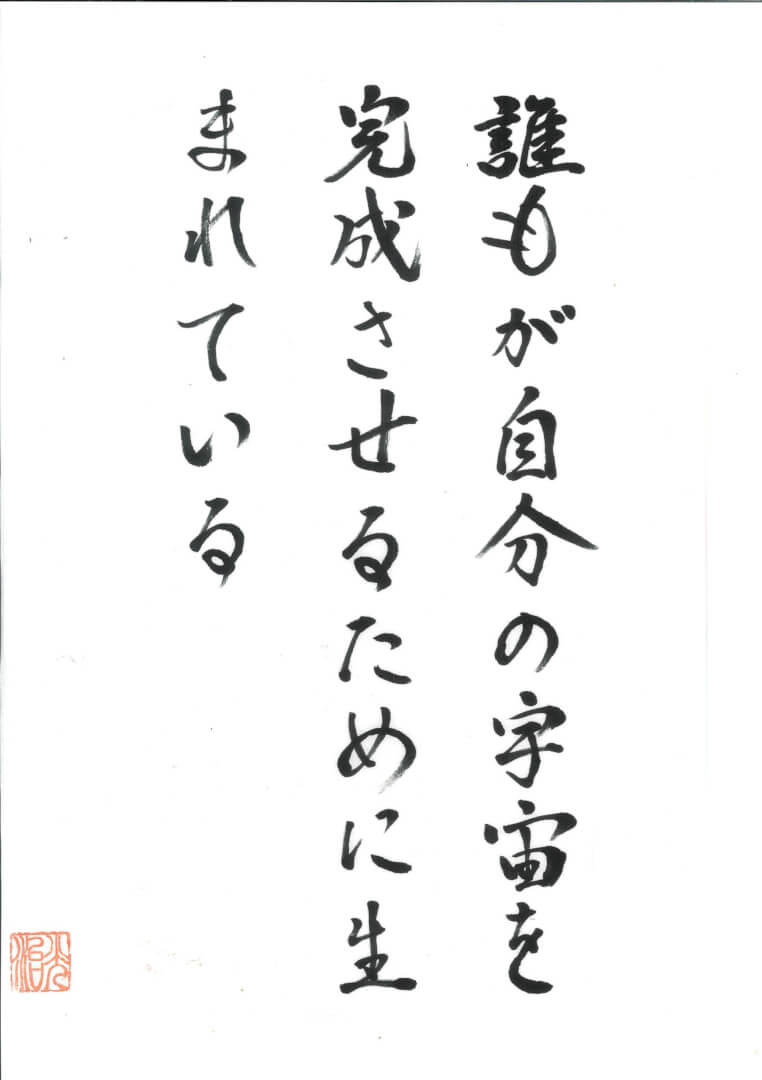 誰もが自分の宇宙を
完成させるために生
まれている